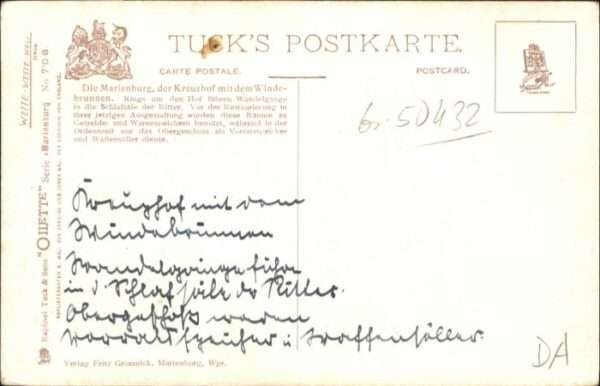 TUCK'S POSTKARTE.
CARTE POSTALE.
POSTCARD.
Die Marienburg, der Kreuzhof mit dem Winde-
brunnen. Rings um den Hof führen Wandelgänge
in die Schlafsäle der Ritter. Vor der Restaurierung in
ihrer jetzigen Ausgestaltung wurden diese Räume zu
Getreide- und Warenspeichern benutzt, während in der
Ordenszeit nur das Obergeschoss als Vorratsspeicher
und Waffensöller diente.
6.50432
Kreuzhof mit dem
Windebrunnen
Wandelgänge führen
in d. Schlafsäle der Ritter.
Obergeschoß waren
Vorratsspeicher u. Waffensöller.
DA
Verlag Fritz Grossnick, Marienburg, Wpr.
Raphael Tuck & Sons "OILETTE" Serie »Marienburg« No 70B